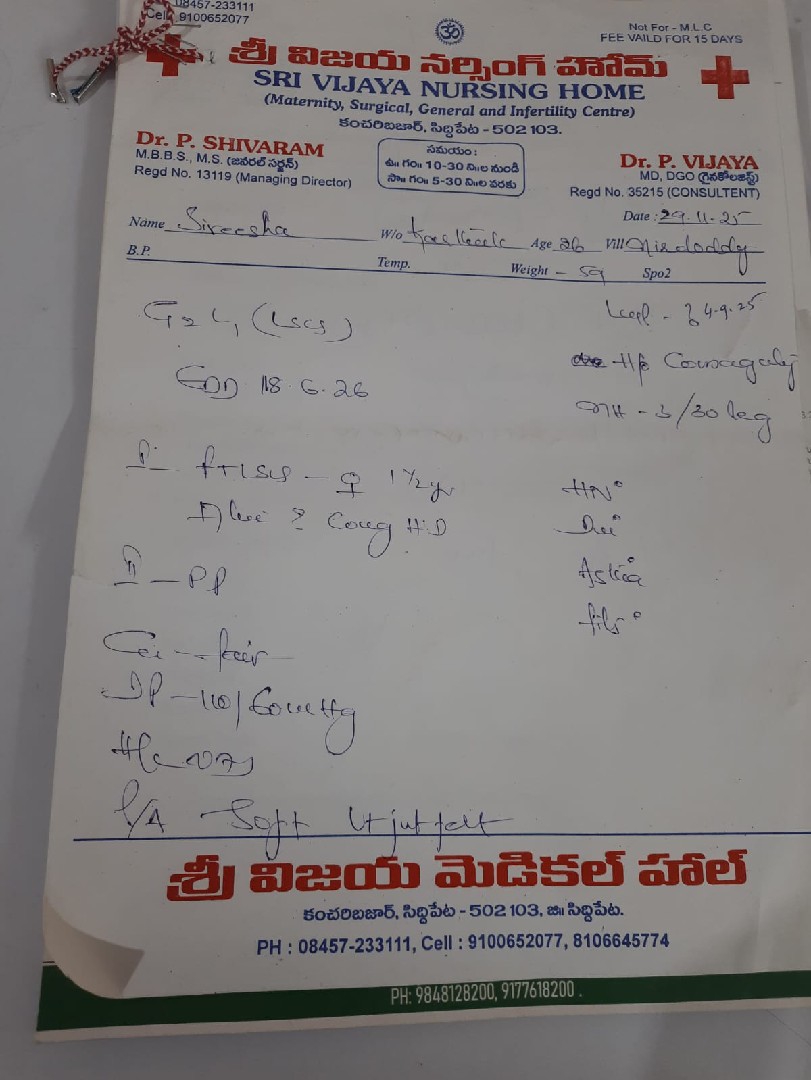 08457-233111
Cell : 9100652077
Not For - M.L.C
FEE VAILD FOR 15 DAYS
ॐ
శ్రీ విజయ నర్సింగ్ హోమ్
SRI VIJAYA NURSING HOME
(Maternity, Surgical, General and Infertility Centre)
కంచరిబజార్, సిద్దిపేట - 502 103.
Dr. P. SHIVARAM
M.B.B.S., M.S. (జనరల్ సర్జన్)
Regd No. 13119 (Managing Director)
సమయం:
ఉ॥ గం॥ 10-30 ని॥ల నుండి
సా॥ గం॥ 5-30 ని॥ల వరకు
Dr. P. VIJAYA
MD, DGO (గైనకోలజిస్ట్)
Regd No. 35215 (CONSULTENT)
Date : 29.11.25
Name Sireesha W/o Age 26 Vill Mirdoddy
B.P. Temp. Weight - 59 Spo2
G2 L1 (LSCS)
LMP - 4.9.25
EDD 18.6.26
H/o
MH - 3/30 Reg
I - FTLSCS - ♀ 1 1/2 yr
Cong H.D
II - PP
GC - fair
BP - 110/60mmHg
P/A Soft Ut just felt
శ్రీ విజయ మెడికల్ హాల్
కంచరిబజార్, సిద్దిపేట - 502 103, జి॥ సిద్దిపేట.
PH : 08457-233111, Cell : 9100652077, 8106645774
PH: 9848128200, 9177618200 .